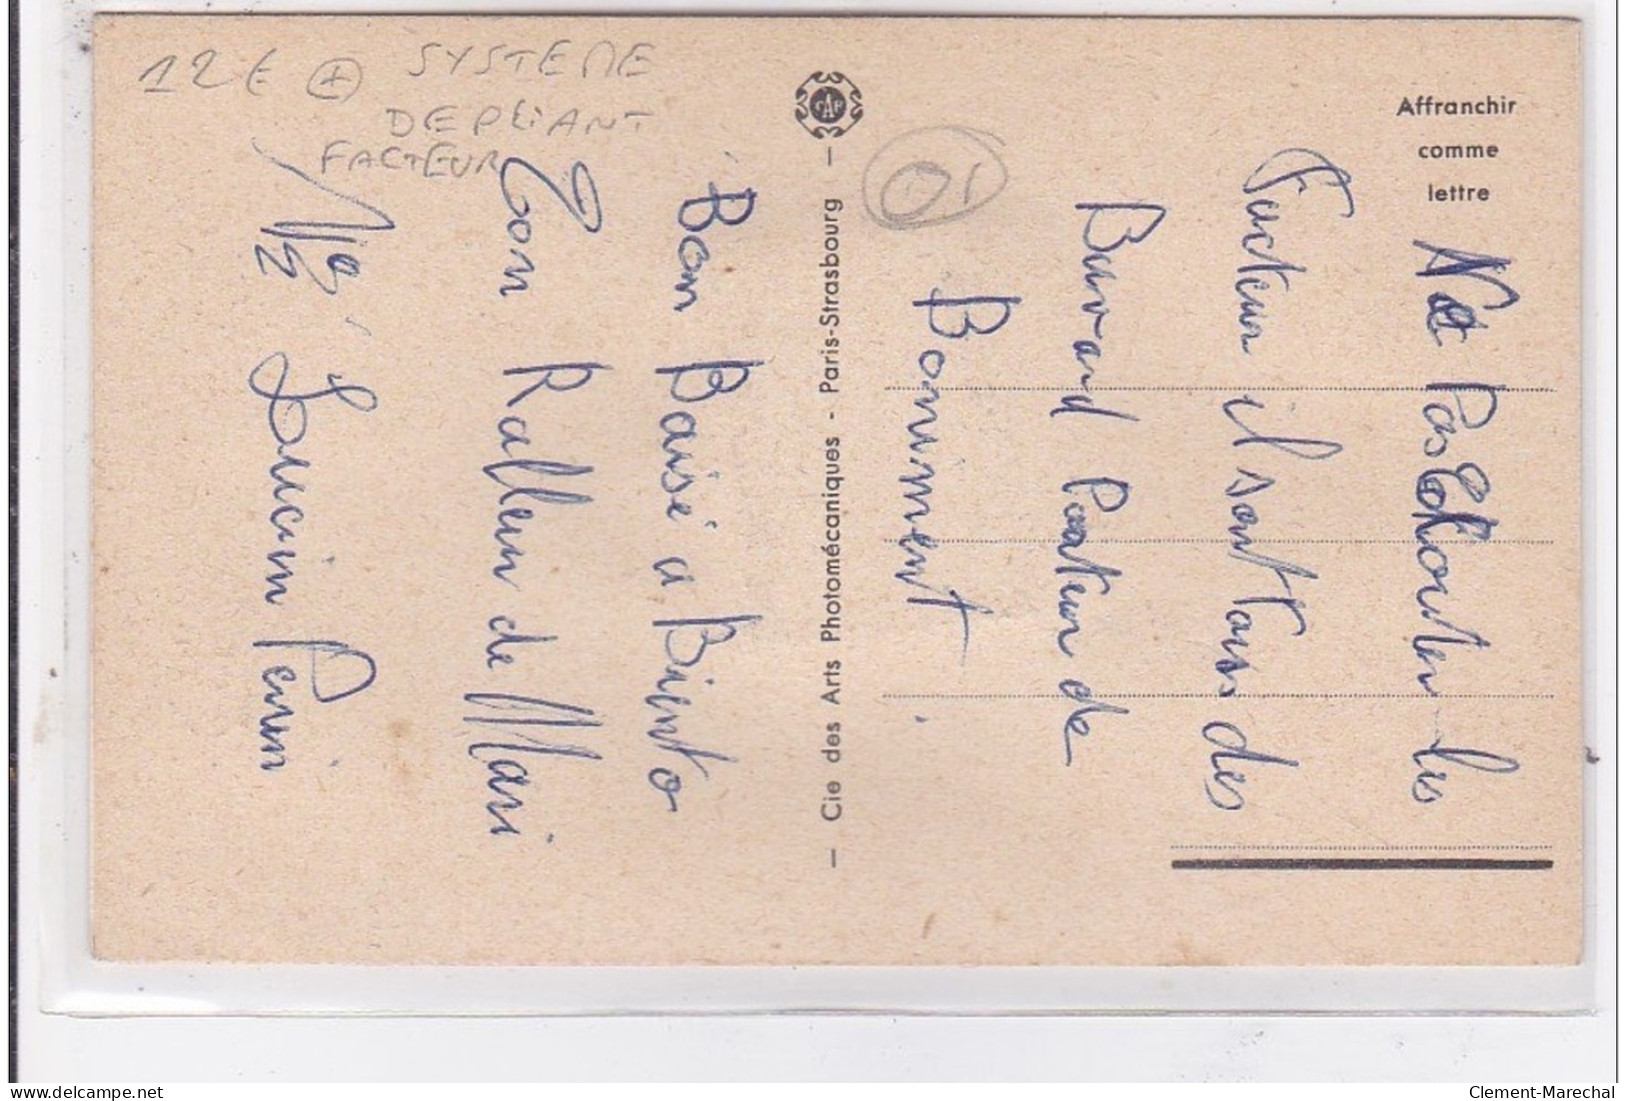 12 € + SYSTEME
DEPLIANT
FACTEUR
01
Affranchir
comme
lettre
— Cie des Arts Photomécaniques - Paris-Strasbourg —
CAP
Ne Pas Ecouter les
Facteur il sont tous des
Buvard Porteur de
Boniment.
Bon Baisé a Biento
Ton Ralleur de Mari
Lucien Perin
www.delcampe.net
Clement-Marechal